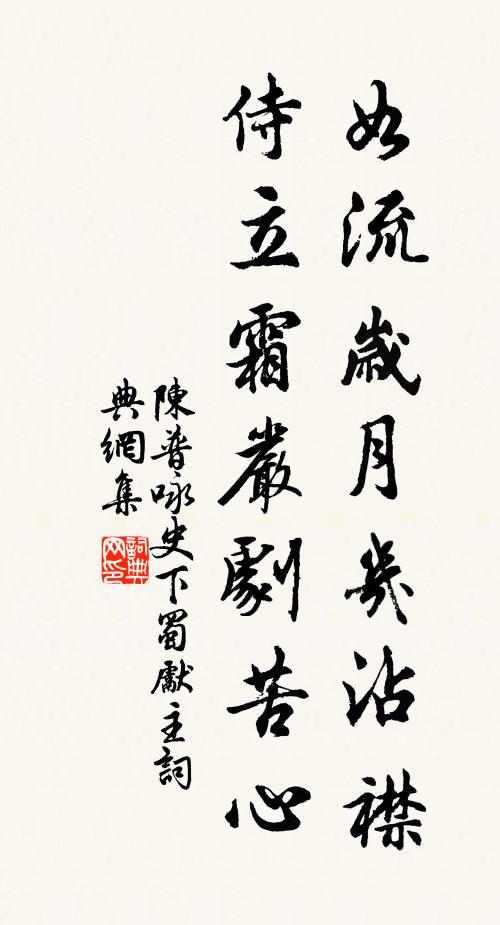 如流歲月幾沾襟
侍立霜嚴劇苦心
陳普咏史下蜀獻主詞
典網集
詞典網印